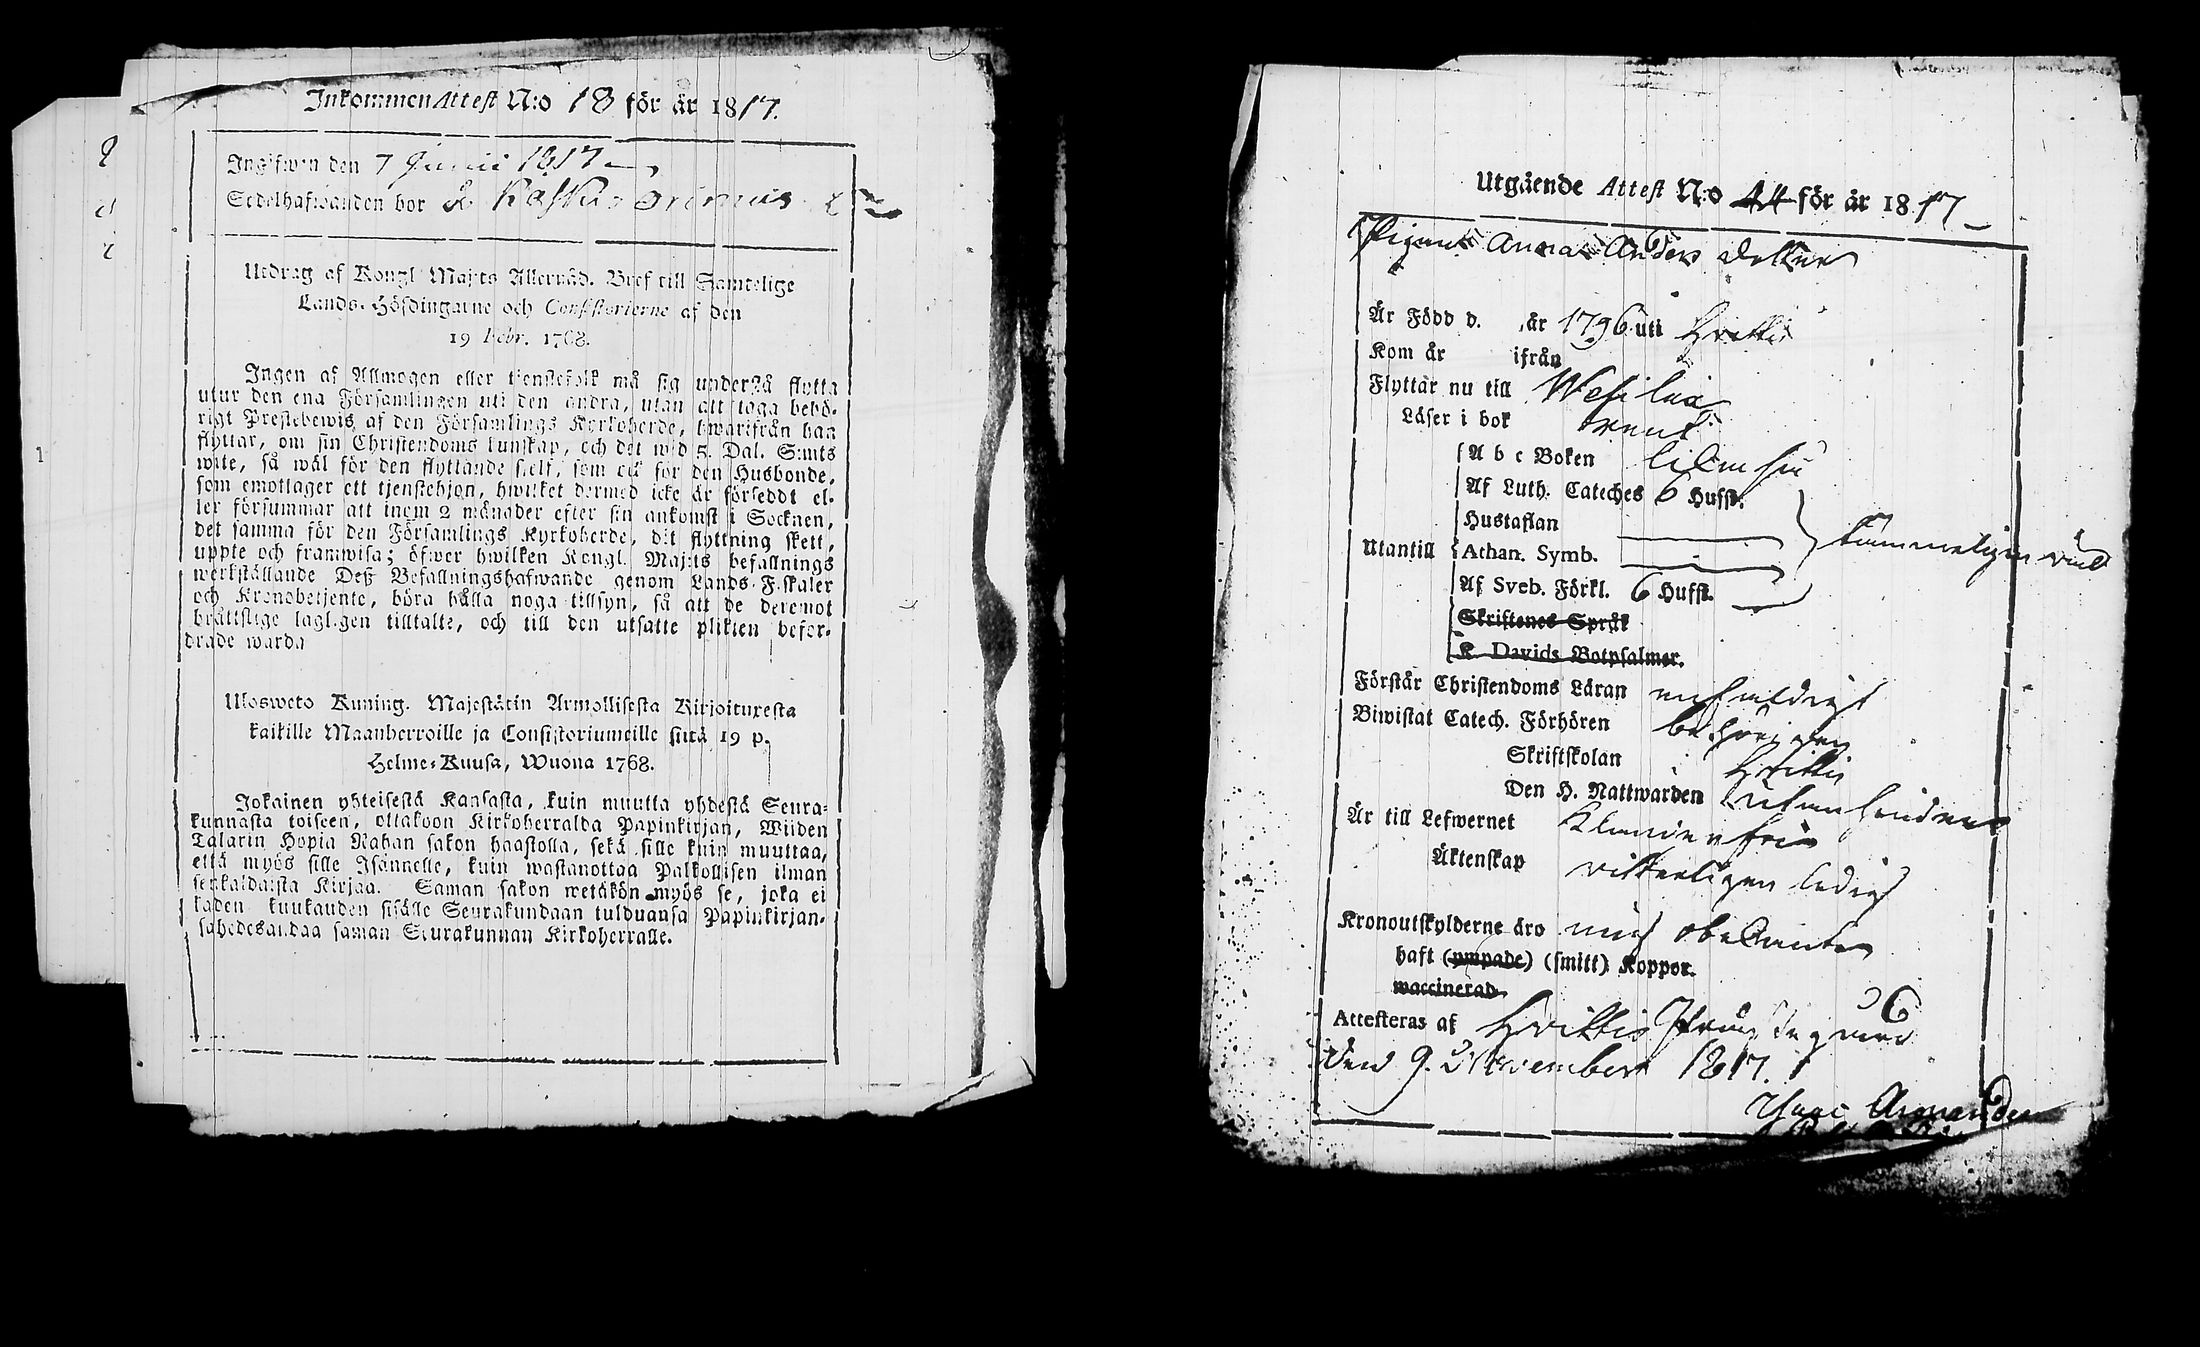 Inkommen Attest N:o 18 för år 1817.
Ingifwen den 7 Junii 1817
Sedelhafwanden bor å
Utdrag af Kongl Maj:ts Allernåd. Bref till Samtelige
Lands-Höfdingarne och Consistorierne af den
19 Febr. 1768.
Ingen af Allmogen eller tjenstefolk må sig understå flytta
utur den ena Församlingen uti den andra, utan att taga behö-
rigt Prestebewis af den Församlings Kyrkoherde, hwarifrån han
flyttar, om sin Christendoms kunskap, och det wid 5. Dal. S:mts
wite, så wäl för den flyttande sjelf, som ock för den Husbonde,
som emottager ett tjenstehjon, hwilket dermed icke är försedt el-
ler försummar att inom 2 månader efter sin ankomst i Socknen,
det samma för den Församlings Kyrkoherde, dit flyttning skett,
uppte och framwisa; öfwer hwilken Kongl. Maj:ts befallnings
werkställande Deß Befallningshafwande genom Lands-Fiskaler
och Kronobetjente, böra hålla noga tillsyn, så att de deremot
bråttslige lagligen tilltalte, och till den utsatte plikten befor-
drade warda
Ulosweto Kuning. Majestätin Armollisesta Kirjoituxesta
kaikille Maanherroille ja Consistoriumeille siitä 19 p.
Helme-Kuusa, Wuona 1768.
Jokainen yhteisestä Kansasta, kuin muutta yhdestä Seura-
kunnasta toiseen, ottakoon Kirkoherralda Papinkirjan, Wiiden
Talarin Hopia Rahan sakon haastolla, sekä sille kuin muuttaa,
että myös sille Isännelle, kuin wastanottaa Palkollisen ilman
senkaldaista Kirjaa. Saman sakon wetäkön myös se, joka ei
kaden kuukauden sisälle Seurakundaan tulduansa Papinkirjan-
sahedesandaa saman Seurakunnan Kirkoherralle.
1
Utgående Attest N:o 44 för år 1817
Pigan Anna Anders dotter
Är Född d. år 1796 uti Hvittis
Kom år ifrån
Flyttar nu till Wesilax
Läser i bok rent
A b c Boken
Af Luth. Cateches 6 Hufst.
Hustaflan
Utantill Athan. Symb.
Af Sveb. Förkl. 6 Hufst.
Skriftenes Språk
K. Davids Botpsalmer.
Förstår Christendoms Läran enfaldigt
Biwistat Catech. Förhören behörigen
Skriftskolan Hvittis
Den H. Nattwarden
Är till Lefwernet
Äktenskap witterligen ledig
Kronoutskylderne äro mig obekanta
haft (ympade) (smitt) Koppor.
waccinerad.
Attesteras af Hvittis
den 9. November 1817.